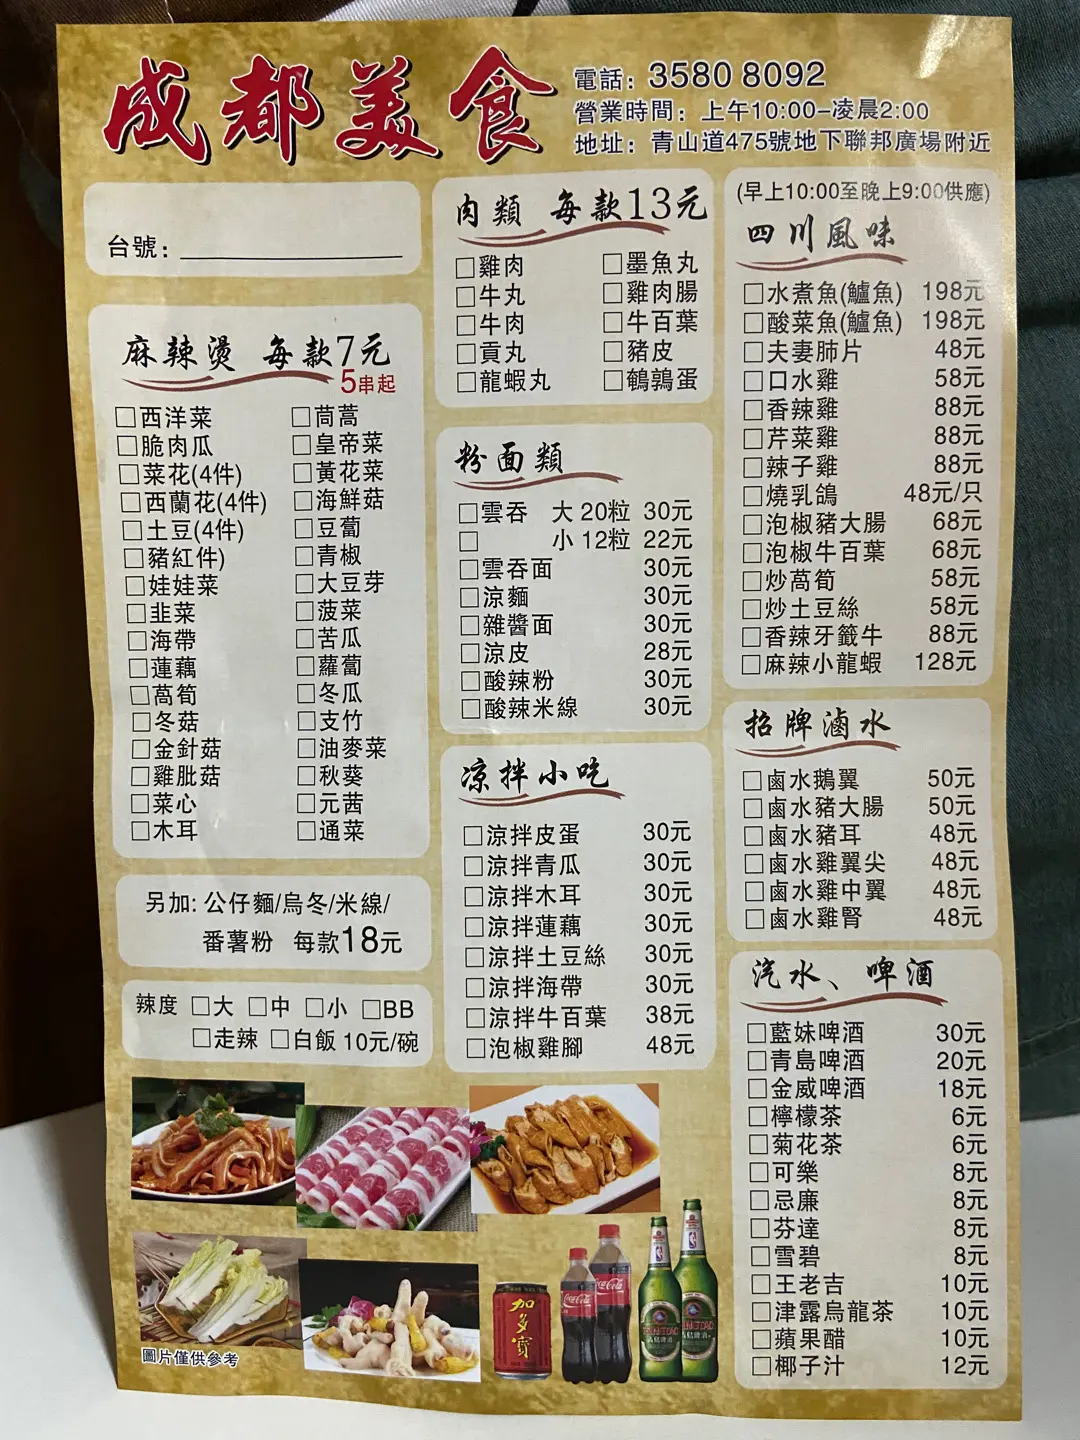 成都美食
電話：3580 8092
營業時間：上午10:00-凌晨2:00
地址：青山道475號地下聯邦廣場附近
台號：
麻辣燙 每款7元
5串起
□西洋菜 □茼蒿
□脆肉瓜 □皇帝菜
□菜花(4件) □黃花菜
□西蘭花(4件) □海鮮菇
□土豆(4件) □豆蔔
□豬紅件) □青椒
□娃娃菜 □大豆芽
□韭菜 □菠菜
□海帶 □苦瓜
□蓮藕 □蘿蔔
□萵筍 □冬瓜
□冬菇 □支竹
□金針菇 □油麥菜
□雞肶菇 □秋葵
□菜心 □元茜
□木耳 □通菜
另加: 公仔麵/烏冬/米線/
番薯粉 每款18元
辣度 □大 □中 □小 □BB
□走辣 □白飯 10元/碗
肉類 每款13元
□雞肉 □墨魚丸
□牛丸 □雞肉腸
□牛肉 □牛百葉
□貢丸 □豬皮
□龍蝦丸 □鵪鶉蛋
粉面類
□雲吞 大 20粒 30元
□ 小 12粒 22元
□雲吞面 30元
□涼麵 30元
□雜醬面 30元
□涼皮 28元
□酸辣粉 30元
□酸辣米線 30元
凉拌小吃
□涼拌皮蛋 30元
□涼拌青瓜 30元
□涼拌木耳 30元
□涼拌蓮藕 30元
□涼拌土豆絲 30元
□涼拌海帶 30元
□涼拌牛百葉 38元
□泡椒雞腳 48元
(早上10:00至晚上9:00供應)
四川風味
□水煮魚(鱸魚) 198元
□酸菜魚(鱸魚) 198元
□夫妻肺片 48元
□口水雞 58元
□香辣雞 88元
□芹菜雞 88元
□辣子雞 88元
□燒乳鴿 48元/只
□泡椒豬大腸 68元
□泡椒牛百葉 68元
□炒萵筍 58元
□炒土豆絲 58元
□香辣牙籤牛 88元
□麻辣小龍蝦 128元
招牌滷水
□鹵水鵝翼 50元
□鹵水豬大腸 50元
□鹵水豬耳 48元
□鹵水雞翼尖 48元
□鹵水雞中翼 48元
□鹵水雞腎 48元
汽水、啤酒
□藍妹啤酒 30元
□青島啤酒 20元
□金威啤酒 18元
□檸檬茶 6元
□菊花茶 6元
□可樂 8元
□忌廉 8元
□芬達 8元
□雪碧 8元
□王老吉 10元
□津露烏龍茶 10元
□蘋果醋 10元
□椰子汁 12元
圖片僅供參考
加多寶
Coca-Cola
Coca-Cola
TSINGTAO